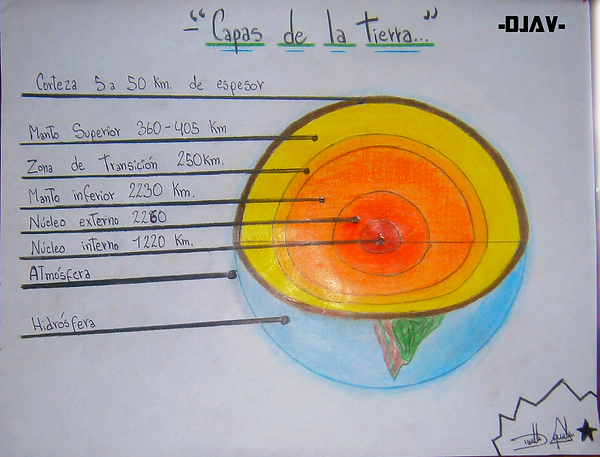 -“Capas de la Tierra...”
-DJAV-
Corteza 5 a 50 Km. de espesor
Manto Superior 360-405 Km
Zona de Transición 250Km.
Manto inferior 2230 Km.
Núcleo externo 2260
Núcleo interno 1220 Km.
Atmósfera
Hidrósfera